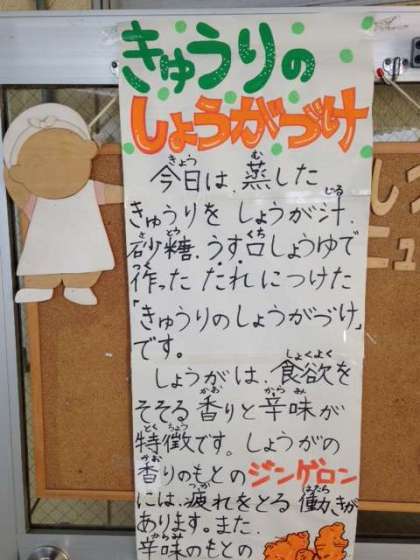 きゅうりの
しょうがづけ
今日は、蒸した
きゅうりをしょうが汁、
砂糖、うす口しょうゆで
作ったたれにつけた、
「きゅうりのしょうがづけ」
です。
しょうがは、食欲を
そそる香りと辛味が
特徴です。しょうがの
香りのもとのジンゲロン
には、疲れをとる働きが
あります。また、
辛味のもとの